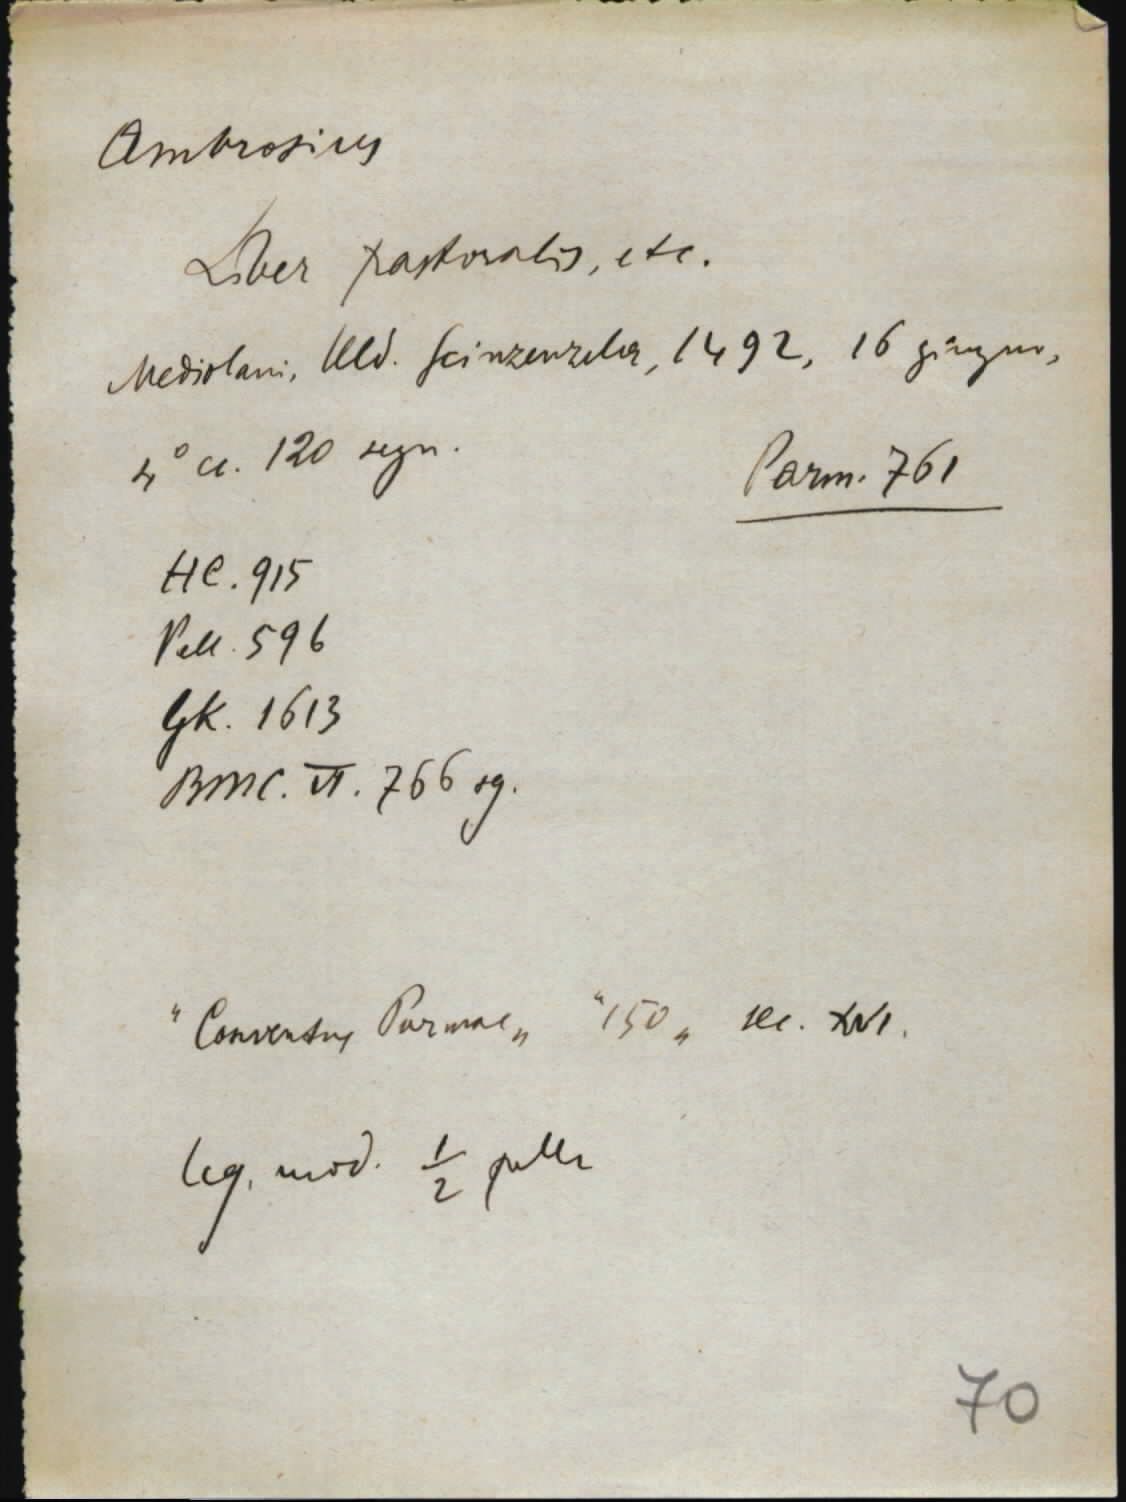 Ambrosius
Liber pastoralis, etc.
Mediolani, Uld. Scinzenzeler, 1492, 16 giugno,
4° cc. 120 segn.
Parm. 761
HC. 915
Pell. 596
GK. 1613
BMC. VI. 766 sg.
"Conventus Parmae„ "150„ sec. XVI.
leg. mod. 1/2 pelle
70